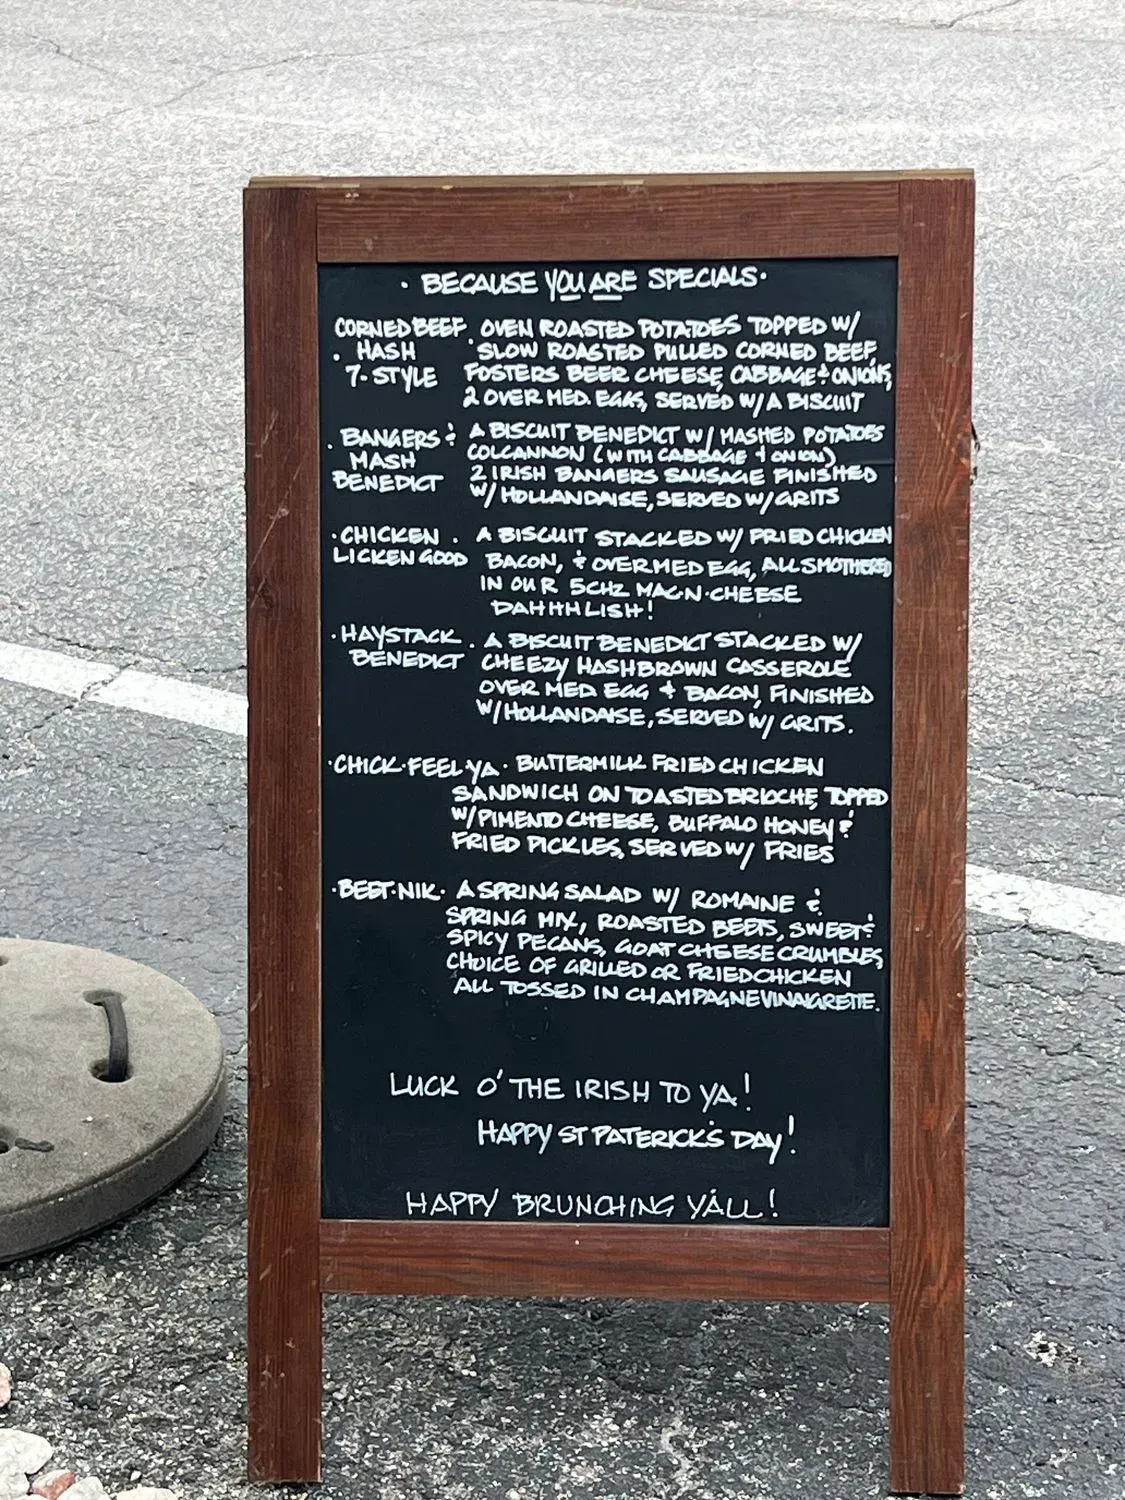 · BECAUSE YOU ARE SPECIALS·
CORNED BEEF . OVEN ROASTED POTATOES TOPPED W/
. HASH SLOW ROASTED PULLED CORNED BEEF,
7-STYLE FOSTERS BEER CHEESE, CABBAGE & ONIONS,
2 OVER MED. EGGS, SERVED W/ A BISCUIT
. BANGERS & A BISCUIT BENEDICT W/ MASHED POTATOES
MASH COLCANNON (WITH CABBAGE + ONION)
BENEDICT 2 IRISH BANGERS SAUSAGE FINISHED
W/ HOLLANDAISE, SERVED W/ GRITS
·CHICKEN . A BISCUIT STACKED W/ FRIED CHICKEN
LICKEN GOOD BACON, & OVER MED EGG, ALL SMOTHERED
IN OUR 5CHZ MAC·N·CHEESE
DAHHHLISH!
·HAYSTACK . A BISCUIT BENEDICT STACKED W/
BENEDICT CHEEZY HASHBROWN CASSEROLE
OVER MED EGG + BACON, FINISHED
W/ HOLLANDAISE, SERVED W/ GRITS.
·CHICK·FEEL YA · BUTTERMILK FRIED CHICKEN
SANDWICH ON TOASTED BRIOCHE, TOPPED
W/ PIMENTO CHEESE, BUFFALO HONEY &
FRIED PICKLES, SERVED W/ FRIES
·BEET·NIK· A SPRING SALAD W/ ROMAINE &
SPRING MIX, ROASTED BEETS, SWEET &
SPICY PECANS, GOAT CHEESE CRUMBLES,
CHOICE OF GRILLED OR FRIED CHICKEN
ALL TOSSED IN CHAMPAGNE VINAIGRETTE.
LUCK O' THE IRISH TO YA!
HAPPY ST PATERICK'S DAY!
HAPPY BRUNCHING YÁLL!